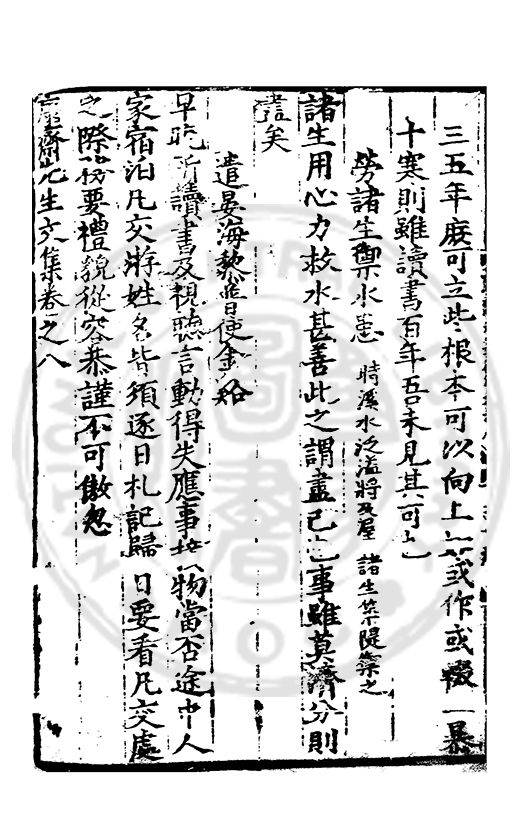 三五年庶可立些根本可以向上此或作或輟一暴
十寒則雖讀書百年吾未見其可也
勞諸生禦水患 時溪水泛溢將及屋 諸生築隄禦之
諸生用心力救水甚善此之謂盡己之事雖莫濟分則
盡矣
遣晏海黎
早晚所讀書及視聽言動得失應事接物當否途中人
家宿泊凡交游姓名皆須逐日札記歸日要看凡交處
之際務要禮貌從容恭謹不可傲忽
齋先生文集卷之八